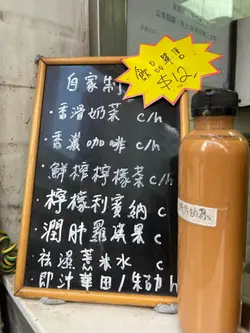 自家制
飲品單售
$12
·香滑奶茶 c/h
·香濃咖啡 c/h
·鮮檸檸檬茶 c/
·檸檬利賓納 c
·潤肝羅漢果 c
·祛濕薏米水 c
·即汁華田/朱古力 h